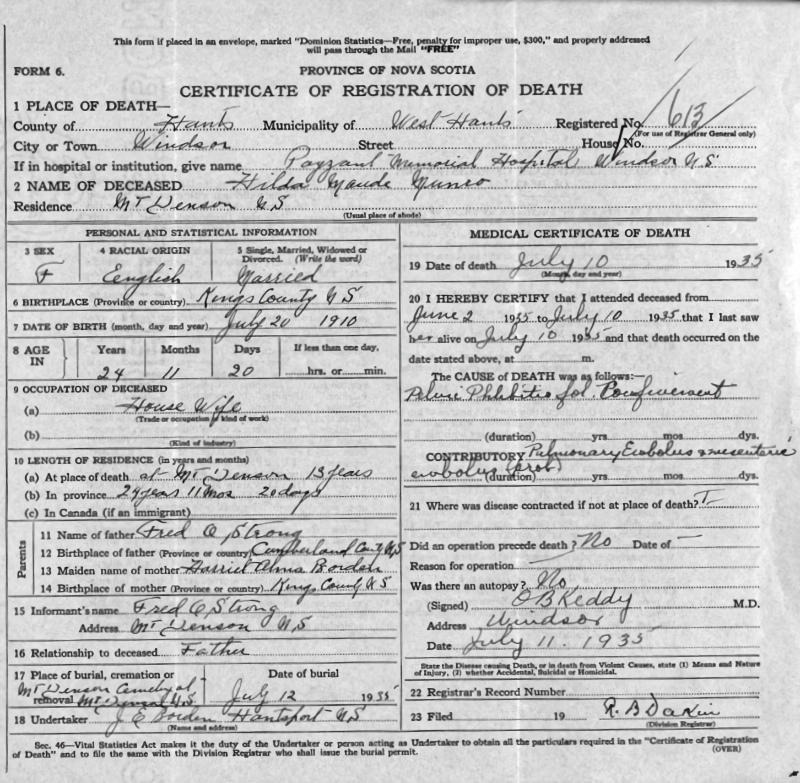 This form if placed in an envelope, marked "Dominion Statistics—Free, penalty for improper use, $300," and properly addressed
will pass through the Mail "FREE"
FORM 6.
PROVINCE OF NOVA SCOTIA
CERTIFICATE OF REGISTRATION OF DEATH
1 PLACE OF DEATH—
County of Hants Municipality of West Hants Registered No. 613
(For use of Registrar General only)
City or Town Windsor Street House No.
If in hospital or institution, give name Payzant Memorial Hospital Windsor N S
2 NAME OF DECEASED Hilda Maude Munro
Residence Mt Denson N S
(Usual place of abode)
PERSONAL AND STATISTICAL INFORMATION
3 SEX 4 RACIAL ORIGIN 5 Single, Married, Widowed or Divorced. (Write the word)
F English Married
6 BIRTHPLACE (Province or country) Kings County N S
7 DATE OF BIRTH (month, day and year) July 20 1910
8 AGE IN Years Months Days If less than one day,
24 11 20 hrs. or min.
9 OCCUPATION OF DECEASED
(a) House Wife
(Trade or occupation / kind of work)
(b)
(Kind of industry)
10 LENGTH OF RESIDENCE (in years and months)
(a) At place of death at Mt Denson 13 years
(b) In province 24 years 11 mos 20 days
(c) In Canada (if an immigrant)
Parents
11 Name of father Fred O Strong
12 Birthplace of father (Province or country) Cumberland County N S
13 Maiden name of mother Harriet Alma Borden
14 Birthplace of mother (Province or country) Kings County N S
15 Informant's name Fred O Strong
Address Mt Denson N S
16 Relationship to deceased Father
17 Place of burial, cremation or removal Date of burial
Mt Denson Cemetry at Mt Denson N.S July 12 1935
18 Undertaker J E Borden Hantsport N S
(Name and address)
MEDICAL CERTIFICATE OF DEATH
19 Date of death July 10 1935
(Month, day and year)
20 I HEREBY CERTIFY that I attended deceased from
June 2 1935 to July 10 1935 that I last saw
her alive on July 10 1935 and that death occurred on the
date stated above, at m.
The CAUSE OF DEATH was as follows:—
Pelvic Phlebitis fol. Confinement
(duration) yrs mos dys.
CONTRIBUTORY Pulmonary Embolus & mesenteric
embolus (prob)
(duration) yrs. mos. dys.
21 Where was disease contracted if not at place of death?
Did an operation precede death? No Date of —
Reason for operation —
Was there an autopsy? No
(Signed) O B Keddy M.D.
Address Windsor
Date July 11. 1935
State the Disease causing Death, or in death from Violent Causes, state (1) Means and Nature
of Injury, (2) whether Accidental, Suicidal or Homicidal.
22 Registrar's Record Number
23 Filed 19 R. B Dakin
(Division Registrar)
Sec. 46—Vital Statistics Act makes it the duty of the Undertaker or person acting as Undertaker to obtain all the particulars required in the "Certificate of Registration
of Death" and to file the same with the Division Registrar who shall issue the burial permit. (OVER)